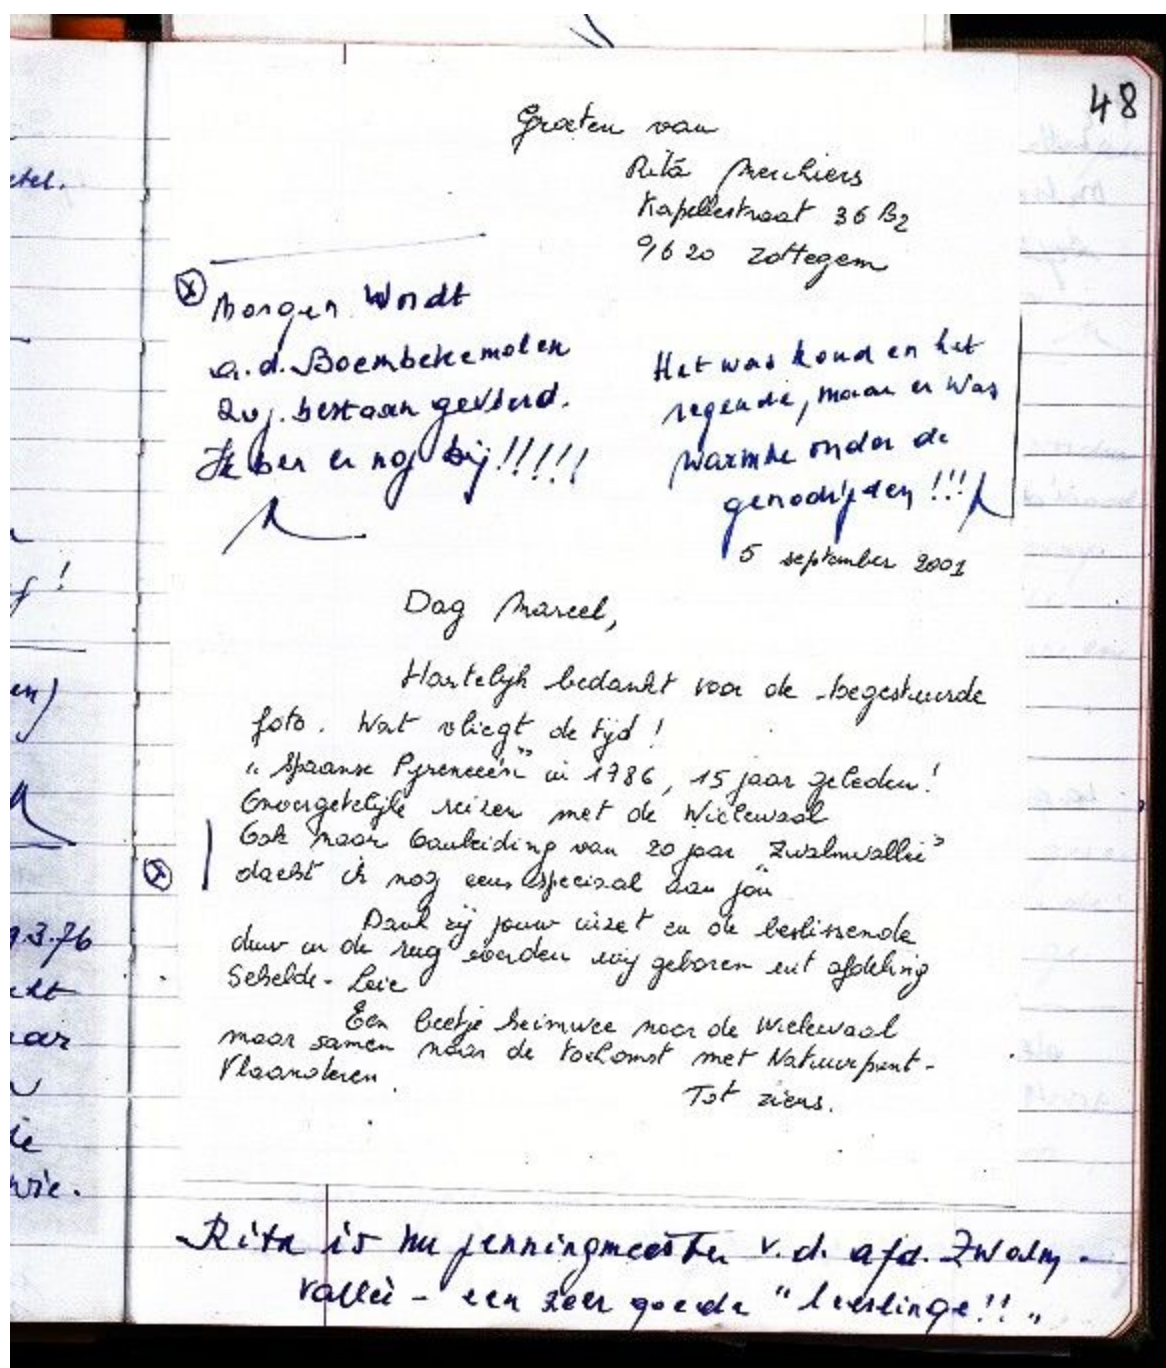 48
Groeten van
Rita Merchiers
Kapellestraat 36 B2
9620 Zottegem
Morgen wordt
a.d. Boembekemolen
20 j. bestaan gevierd.
Ik ben er nog bij!!!!!
Het was koud en het
regende, maar er was
warmte onder de
genodigden!!!
5 september 2001
Dag Marcel,
Hartelijk bedankt voor de toegestuurde
foto. Wat vliegt de tijd!
"Spaanse Pyreneeën" in 1986, 15 jaar geleden!
Onvergetelijke reizen met de Wielewaal
Ook naar aanleiding van 20 jaar "Zwalmvallei"
dacht ik nog eens speciaal aan jou
Dank zij jouw inzet en de beslissende
duw in de rug werden wij geboren uit afdeling
Schelde - Leie
Een beetje heimwee naar de Wielewaal
maar samen naar de toekomst met Natuurpunt -
Vlaanderen.
Tot ziens.
Rita is nu penningmeester v.d. afd. Zwalm -
vallei - een zeer goede "leerlinge!!"
etel.
en)
9.3.76